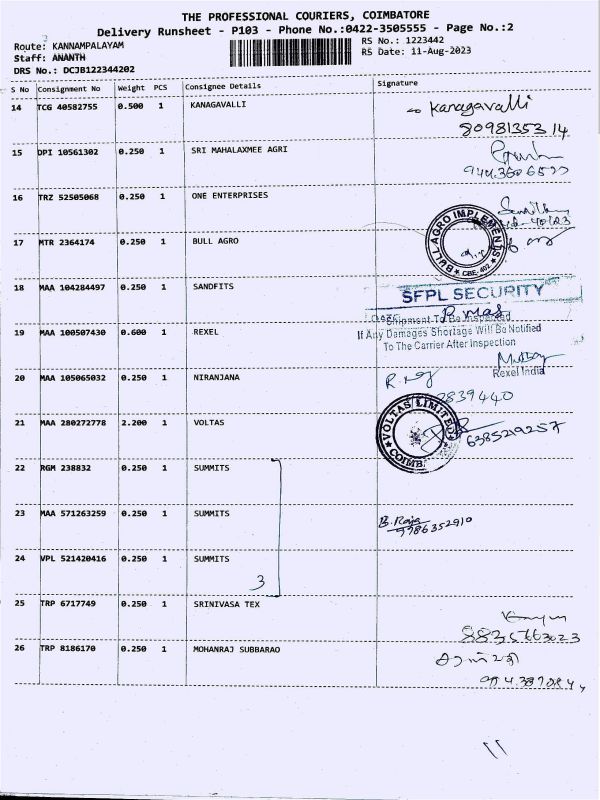 THE PROFESSIONAL COURIERS, COIMBATORE
Delivery Runsheet - P103 - Phone No.:0422-3505555 - Page No.:2
Route: KANNAMPALAYAM
Staff: ANANTH
DRS No.: DCJB122344202
RS No.: 1223442
RS Date: 11-Aug-2023
S No Consignment No Weight PCS Consignee Details Signature
14 TCG 40582755 0.500 1 KANAGAVALLI Kanagavalli
8098135314
15 DPI 10561302 0.250 1 SRI MAHALAXMEE AGRI
16 TRZ 52505068 0.250 1 ONE ENTERPRISES
17 MTR 2364174 0.250 1 BULL AGRO
BULL AGRO IMPLEMENTS
CBE-402
18 MAA 104284497 0.250 1 SANDFITS
SFPL SECURITY
19 MAA 100507430 0.600 1 REXEL
Shipment To Be Inspected
If Any Damages Shortage Will Be Notified
To The Carrier After Inspection
Rexel India
20 MAA 105065032 0.250 1 NIRANJANA
21 MAA 280272778 2.200 1 VOLTAS
VOLTAS LIMITED
COIMB.
6385219257
22 RGM 238832 0.250 1 SUMMITS
23 MAA 571263259 0.250 1 SUMMITS B.Raja
9786352910
24 VPL 521420416 0.250 1 SUMMITS
3
25 TRP 6717749 0.250 1 SRINIVASA TEX
26 TRP 8186170 0.250 1 MOHANRAJ SUBBARAO